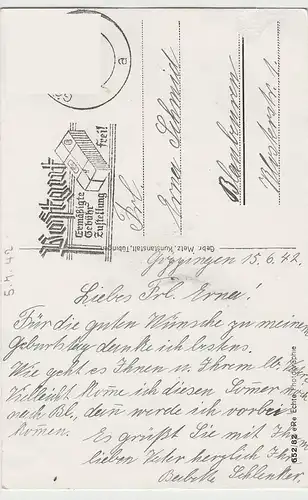 a
Postgut
Ermäßigte
Gebühr
Zustellung
frei!
Frl.
Erna Schmid
Blaubeuren
Klosterstr. 1.
Gebr. Metz, Kunstanstalt, Tübingen
5.4.42
15.6.42
Liebes Frl. Erna!
Für die guten Wünsche zu meinem
Geburtstag danke ich bestens.
Wie geht es Ihnen u. Ihrem lb.
Vielleicht komme ich diesen Sommer
nach Bl., dann werde ich vorbei
kommen.
Es grüßt Sie mit
lieben Vater herzlich Ihr
Schlenker